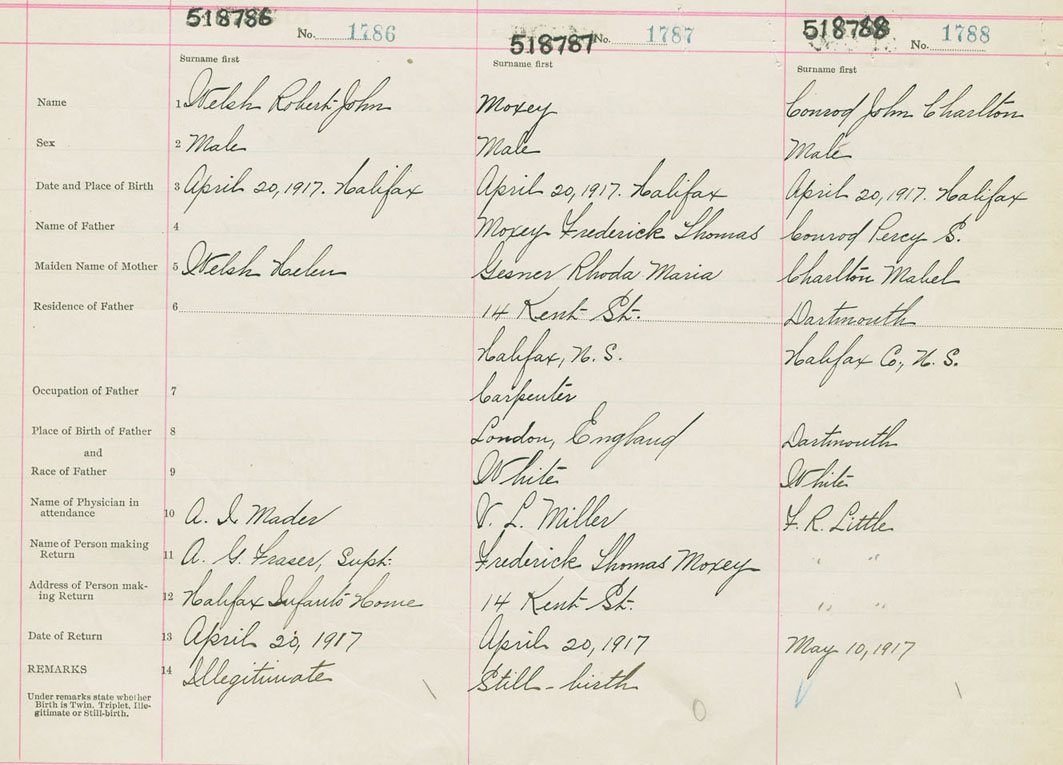 518786 518787 518788
No. 1786 No. 1787 No. 1788
Surname first Surname first Surname first
Name 1 Welsh Robert John Moxey Conrod John Charlton
Sex 2 Male Male Male
Date and Place of Birth 3 April 20, 1917. Halifax April 20, 1917. Halifax April 20, 1917. Halifax
Name of Father 4 Moxey Frederick Thomas Conrod Percy S.
Maiden Name of Mother 5 Welsh Helen Gesner Rhoda Maria Charlton Mabel
Residence of Father 6 14 Kent St. Dartmouth
Halifax, N.S. Halifax Co., N.S.
Occupation of Father 7 Carpenter
Place of Birth of Father 8 London, England Dartmouth
and
Race of Father 9 White White
Name of Physician in
attendance 10 A. I. Mader V. L. Miller F. R. Little
Name of Person making
Return 11 A. G. Fraser, Supt. Frederick Thomas Moxey " "
Address of Person mak-
ing Return 12 Halifax Infants Home 14 Kent St. " "
Date of Return 13 April 20, 1917 April 20, 1917 May 10, 1917
REMARKS 14 Illegitimate Still-birth
Under remarks state whether
Birth is Twin, Triplet, Ille-
gitimate or Still-birth.